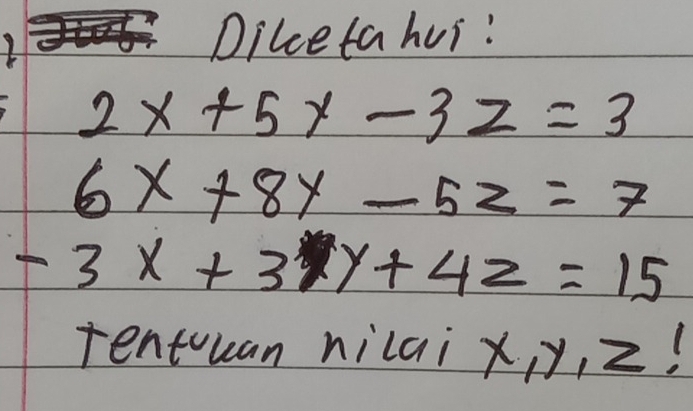 Diketahui:
2x + 5y - 3z = 3
6x + 8y - 5z = 7
-3x + 3y + 4z = 15
Tentukan nilai x, y, z!